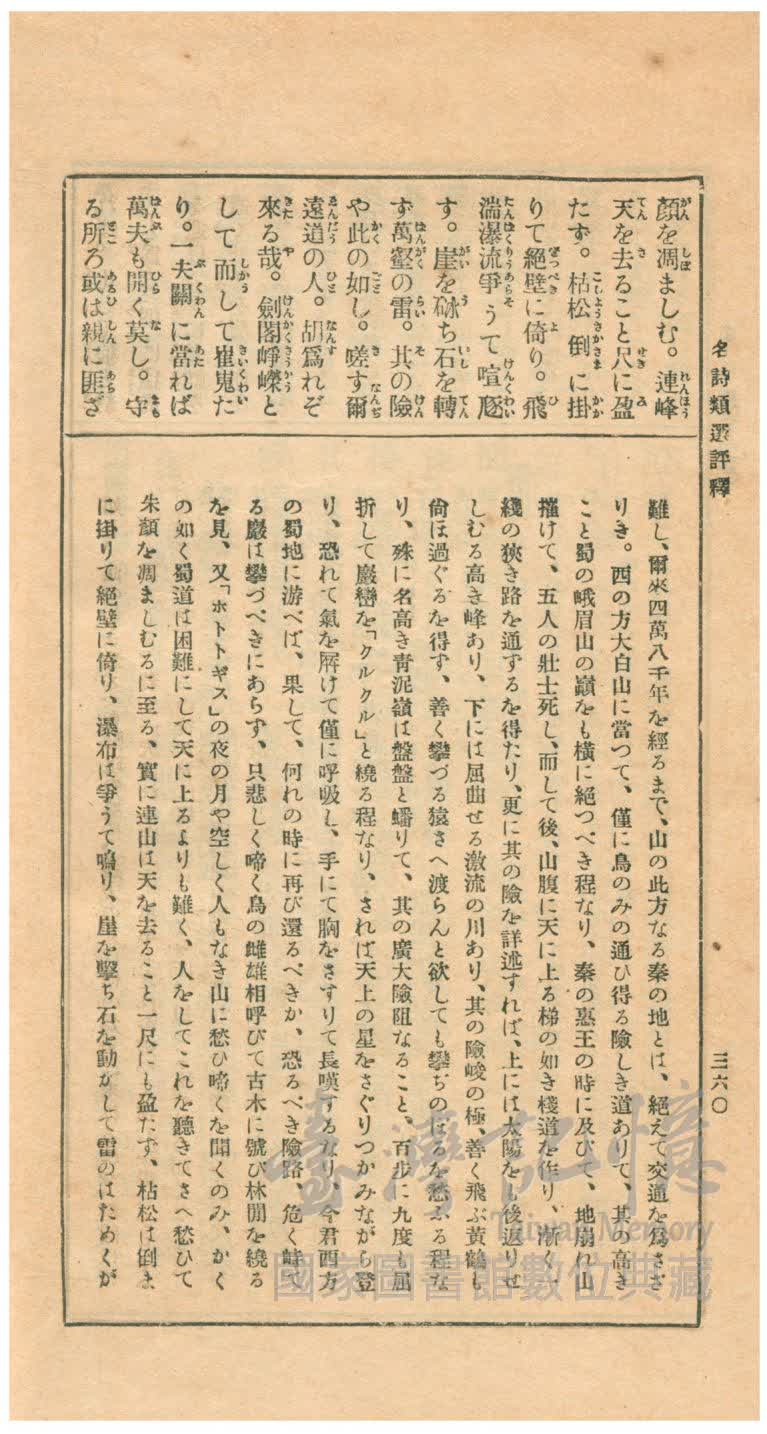 名詩類選評釋
三六〇
顏を凋ましむ。連峰
天を去ること尺に盈
たず。枯松倒に掛
りて絕壁に倚り。飛
湍瀑流爭うて喧豗
す。崖を砯ち石を轉
ず萬壑の雷。其の險
や此の如し。嗟す爾
遠道の人。胡爲れぞ
來る哉。劍閣崢嶸と
して而して崔嵬た
り。一夫關に當れば
萬夫も開く莫し。守
る所ろ或は親に匪ざ
難し、爾來四萬八千年を經るまで、山の此方なる秦の地とは、絕えて交通を爲さざ
りき。西の方大白山に當つて、僅に鳥のみの通ひ得る險しき道ありて、其の高き
こと蜀の峨眉山の巓をも橫に絕つべき程なり、秦の惠王の時に及びて、地崩れ山
摧けて、五人の壯士死し、而して後、山腹に天に上る梯の如き棧道を作り、漸く一
綫の狹き路を通ずるを得たり、更に其の險を詳述すれば、上には太陽をも後返りせ
しむる高き峰あり、下には屈曲せる激流の川あり、其の險峻の極、善く飛ぶ黃鶴も
尙ほ過ぐるを得ず、善く攀づる猿さへ渡らんと欲しても攀ぢのぼるを愁ふる程な
り、殊に名高き靑泥嶺は盤盤と蟠りて、其の廣大險阻なること、百步に九度も屈
折して巖巒を「クルクル」と繞る程なり、されば天上の星をさぐりつかみながら登
り、恐れて氣を屛けて僅に呼吸し、手にて胸をさすりて長嘆するなり、今君西方
の蜀地に游べば、果して、何れの時に再び還るべきか、恐るべき險路、危く峙て
る巖は攀づべきにあらず、只悲しく啼く鳥の雌雄相呼びて古木に號び林間を繞る
を見、又「ホトトギス」の夜の月や空しく人もなき山に愁ひ啼くを聞くのみ、かく
の如く蜀道は困難にして天に上るよりも難く、人をしてこれを聽きてさへ愁ひて
朱顏を凋ましむるに至る、實に連山は天を去ること一尺にも盈たず、枯松は倒ま
に掛りて絕壁に倚り、瀑布は爭うて鳴り、崖を擊ち石を動かして雷のはためくが
臺灣記憶
Taiwan Memory
國家圖書館數位典藏